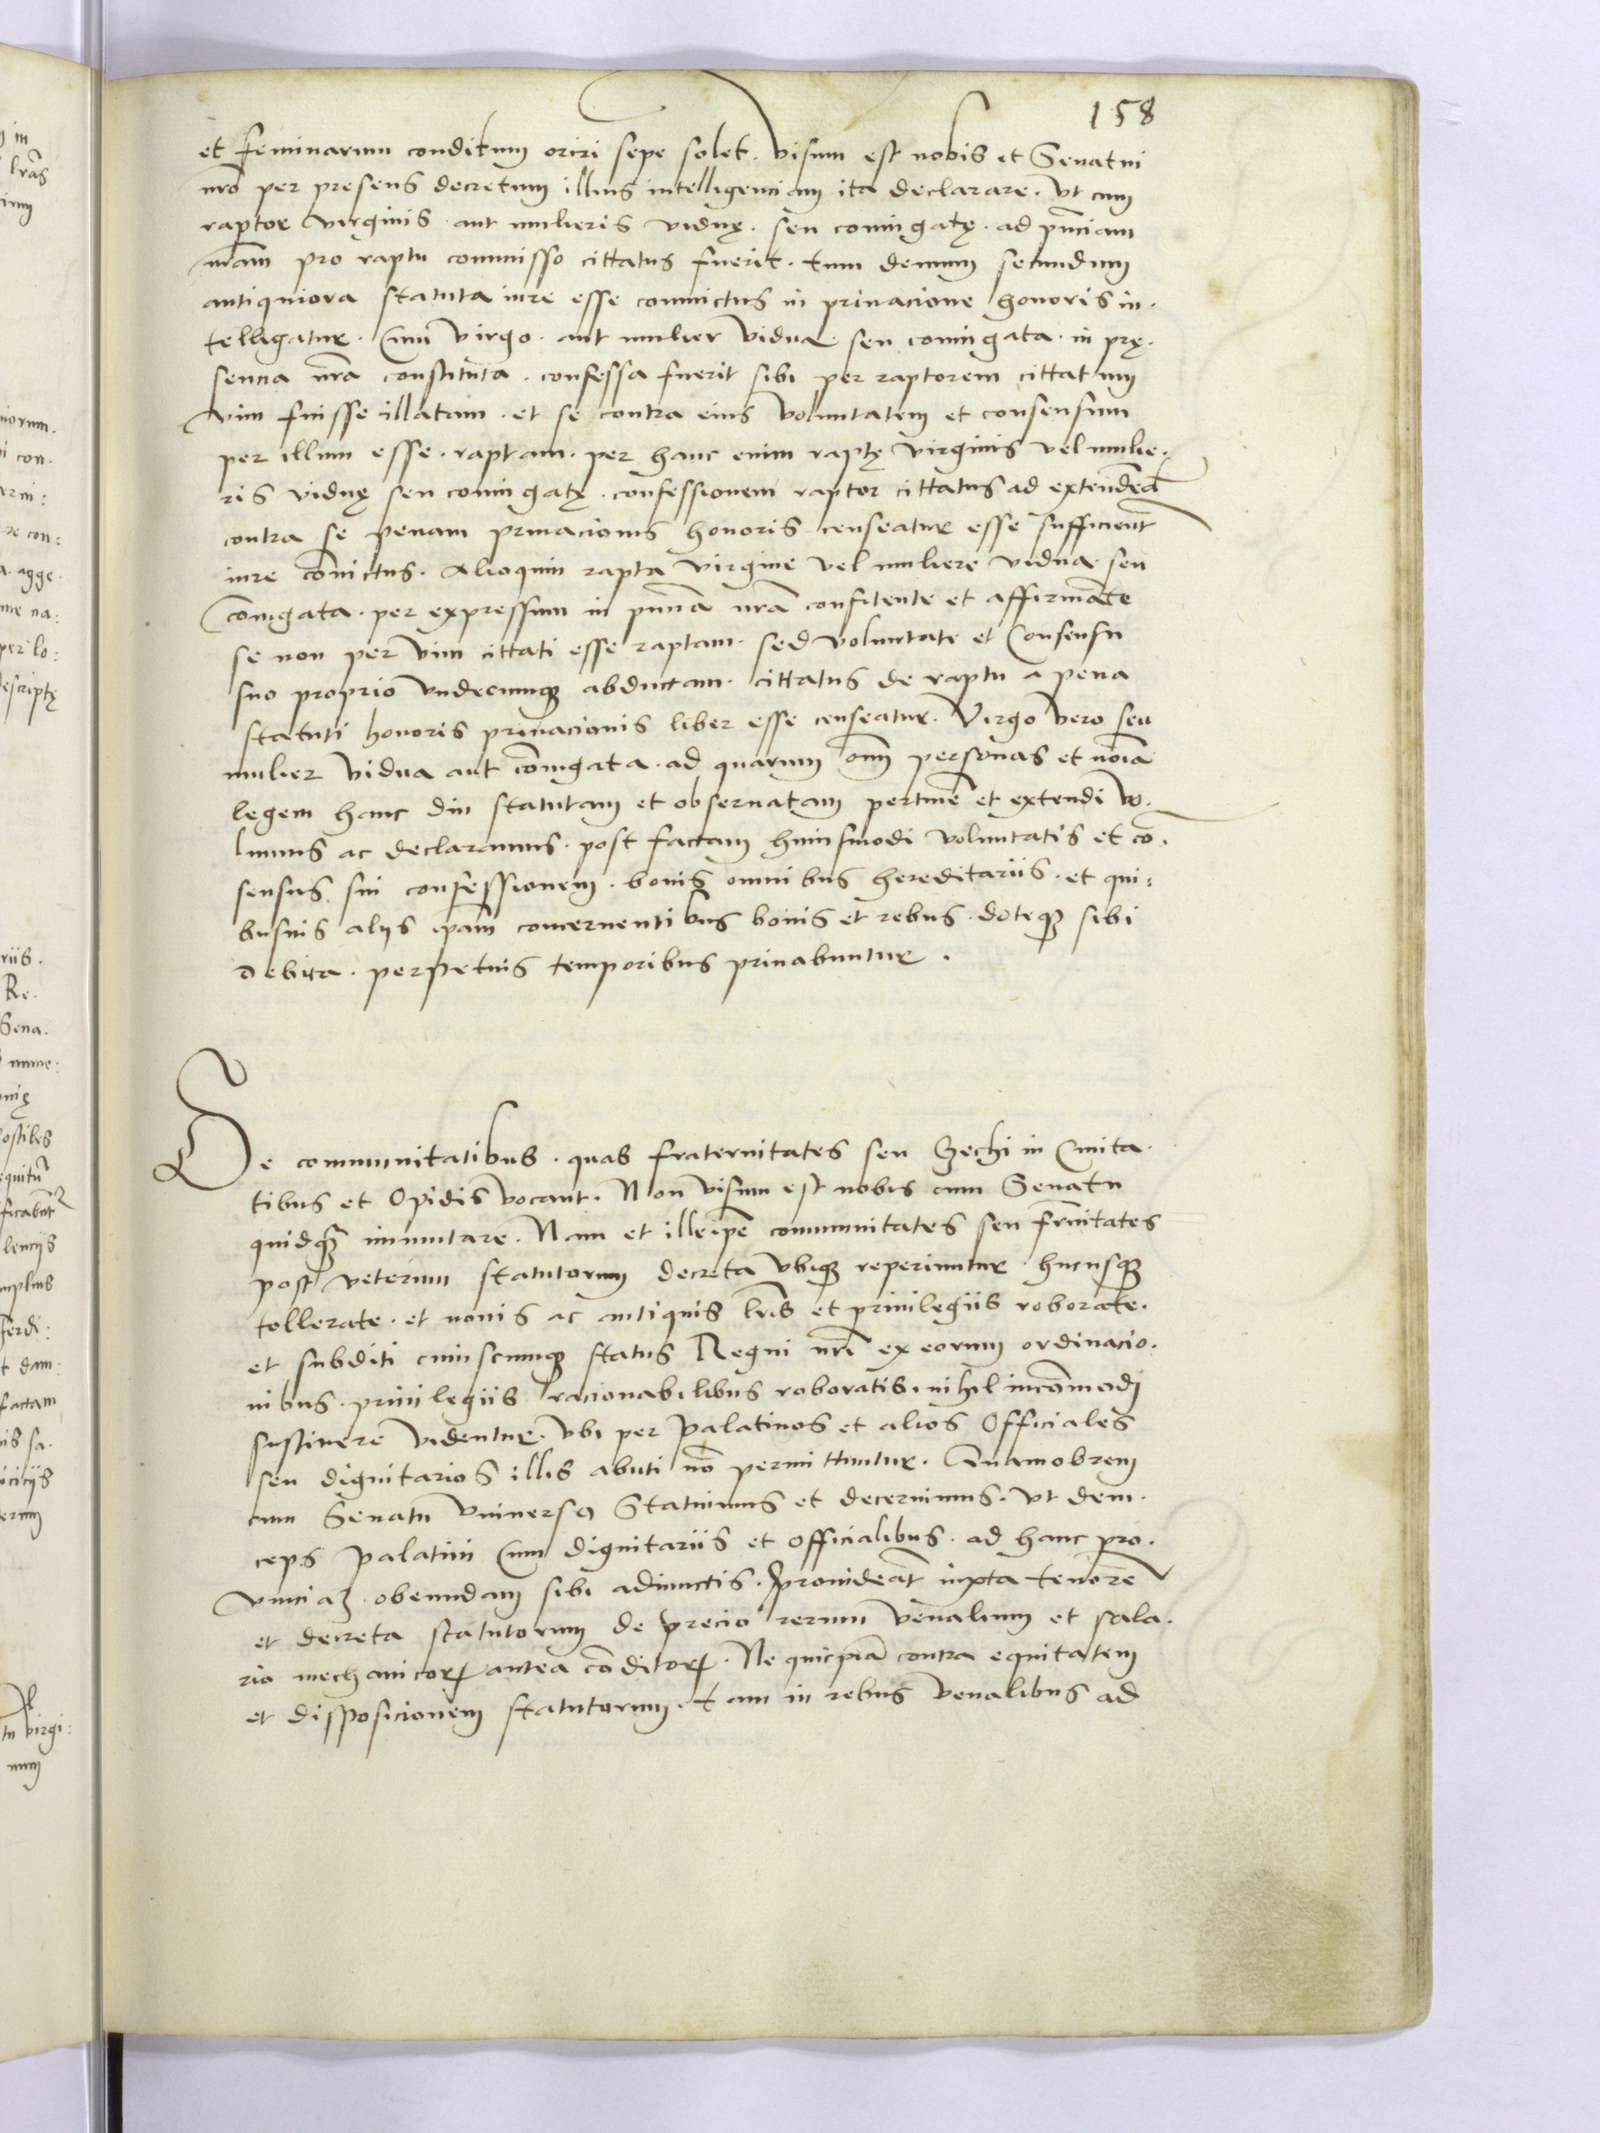 158
et feminarum conditum oriri sepe solet. visum est nobis et Senatui
nro per presens decretum illius intelligenciam ita declarare. Vt cum
raptor virginis aut mulieris viduę. seu coniugatę. ad pñciam
nram pro raptu commisso cittatus fuerit. tum demum secundum
antiquiora statuta iure esse conuictus in priuacione honoris in.
telligatur. Cum virgo. aut mulier vidua. seu coniugata. in prę.
sencia nra constituta. confessa fuerit sibi per raptorem cittatum
vim fuisse illatam. et se contra eius voluntatem et consensum
per illum esse. raptam. per hanc enim raptę virginis vel mulie.
ris viduę seu coniugatę. confessionem raptor cittatus ad extendendã
contra se penam priuacionis honoris censeatur esse sufficient
iure conuictus. Alioquin rapta virgine vel muliere vidua seu
cõiugata. per expressum in pñcia nra confitente et affirmãte
se non per vim cittati esse raptam. sed voluntate et Consensu
suo proprio vndecumq abductam. cittatus de raptu a pena
statuti honoris priuacionis liber esse censeatur. Virgo vero seu
mulier vidua aut cõiugata. ad quarum oñi personas et noĩa
legem hanc diu statutam et obseruatam pertinẽ et extendi vo.
lumus ac declaramus. post factam huiusmodi voluntatis et cõ.
sensus sui confessionem. bonis omnibus hereditariis. et qui:
busuis alijs ipam concernentibus bonis et rebus. doteq sibi
debita. perpetuis temporibus priuabuntur.
De communitatibus. quas fraternitates seu Czechi in Ciuita.
tibus et Opidis vocant. Non visum est nobis cum Senatu
quidq̃ immutare. Nam et ille ipẽ communitates seu frñitates
post veterum statutorum decreta vbiq reperiuntur hucusq
tollerate. et nouis ac antiquis lris et priuilegiis roborate.
et subditi cuiuscumq status Regni nri ex eorum ordinacio.
nibus. priuilegiis racionabilibus roboratis. nihil incõmodi
sustinere videntur. vbi per Palatinos et alios Officiales
seu dignitarios illis abuti nõ permittuntur. Quamobrem
cum Senatu vniuerso Statuimus et decernimus. Vt dein.
ceps palatini Cum dignitariis et officialibus. ad hanc pro.
vinciaz obeundam sibi adiunctis. prouideãt iuxta tenorẽ
et decreta statutorum de precio rerum venalium et sala.
ria mechanicoꝝ antea cõditoꝝ. Ne quicpiã contra equitatem
et disposicionem statutorum. tam in rebus venalibus ad